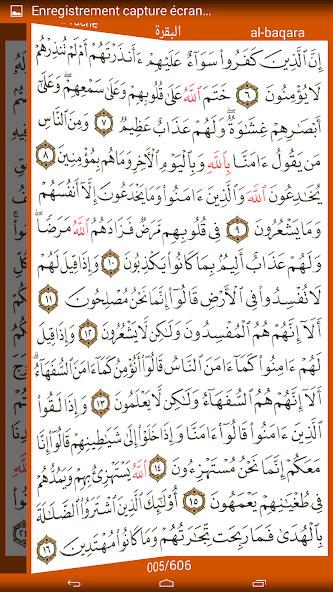 Enregistrement capture écran...
البقرة al-baqara
إِنَّ ٱلَّذِينَ كَفَرُوا۟ سَوَآءٌ عَلَيْهِمْ ءَأَنذَرْتَهُمْ أَمْ لَمْ تُنذِرْهُمْ
لَا يُؤْمِنُونَ ٦ خَتَمَ ٱللَّهُ عَلَىٰ قُلُوبِهِمْ وَعَلَىٰ سَمْعِهِمْ ۖ وَعَلَىٰٓ
أَبْصَٰرِهِمْ غِشَٰوَةٌ ۖ وَلَهُمْ عَذَابٌ عَظِيمٌ ٧ وَمِنَ ٱلنَّاسِ
مَن يَقُولُ ءَامَنَّا بِٱللَّهِ وَبِٱلْيَوْمِ ٱلْءَاخِرِ وَمَا هُم بِمُؤْمِنِينَ ٨
يُخَٰدِعُونَ ٱللَّهَ وَٱلَّذِينَ ءَامَنُوا۟ وَمَا يَخْدَعُونَ إِلَّآ أَنفُسَهُمْ
وَمَا يَشْعُرُونَ ٩ فِى قُلُوبِهِم مَّرَضٌ فَزَادَهُمُ ٱللَّهُ مَرَضًا ۖ
وَلَهُمْ عَذَابٌ أَلِيمٌۢ بِمَا كَانُوا۟ يَكْذِبُونَ ١٠ وَإِذَا قِيلَ لَهُمْ
لَا تُفْسِدُوا۟ فِى ٱلْأَرْضِ قَالُوٓا۟ إِنَّمَا نَحْنُ مُصْلِحُونَ ١١
أَلَآ إِنَّهُمْ هُمُ ٱلْمُفْسِدُونَ وَلَٰكِن لَّا يَشْعُرُونَ ١٢ وَإِذَا قِيلَ
لَهُمْ ءَامِنُوا۟ كَمَآ ءَامَنَ ٱلنَّاسُ قَالُوٓا۟ أَنُؤْمِنُ كَمَآ ءَامَنَ ٱلسُّفَهَآءُ ۗ
أَلَآ إِنَّهُمْ هُمُ ٱلسُّفَهَآءُ وَلَٰكِن لَّا يَعْلَمُونَ ١٣ وَإِذَا لَقُوا۟
ٱلَّذِينَ ءَامَنُوا۟ قَالُوٓا۟ ءَامَنَّا وَإِذَا خَلَوْا۟ إِلَىٰ شَيَٰطِينِهِمْ قَالُوٓا۟ إِنَّا
مَعَكُمْ إِنَّمَا نَحْنُ مُسْتَهْزِءُونَ ١٤ ٱللَّهُ يَسْتَهْزِئُ بِهِمْ وَيَمُدُّهُمْ
فِى طُغْيَٰنِهِمْ يَعْمَهُونَ ١٥ أُو۟لَٰٓئِكَ ٱلَّذِينَ ٱشْتَرَوُا۟ ٱلضَّلَٰلَةَ
بِٱلْهُدَىٰ فَمَا رَبِحَت تِّجَٰرَتُهُمْ وَمَا كَانُوا۟ مُهْتَدِينَ ١٦
005/606